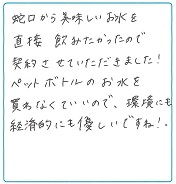 蛇口から美味しいお水を
直接 飲みたかったので
契約させていただきました!
ペットボトルのお水を
買わなくていいので、環境にも
経済的にも優しいですね!。